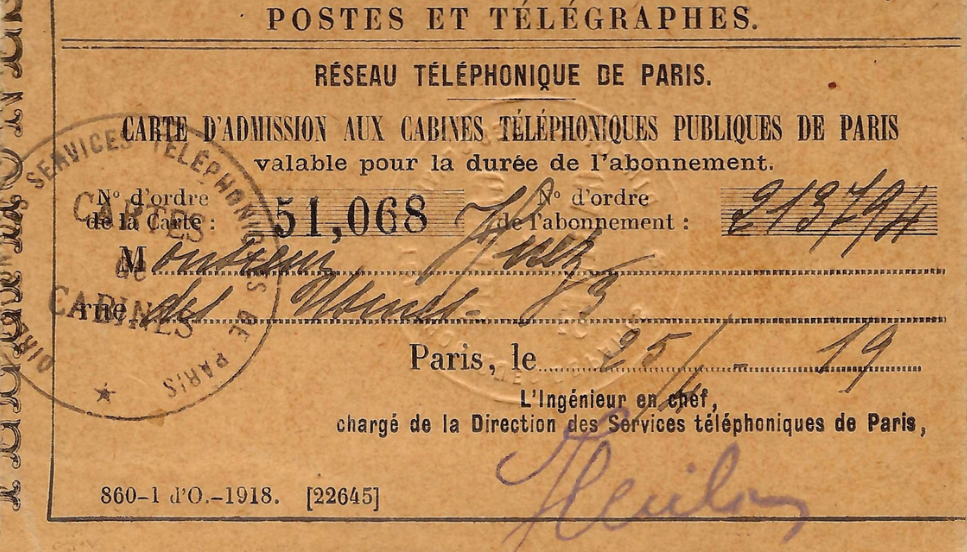 POSTES ET TÉLÉGRAPHES.
RÉSEAU TÉLÉPHONIQUE DE PARIS.
CARTE D'ADMISSION AUX CABINES TÉLÉPHONIQUES PUBLIQUES DE PARIS
valable pour la durée de l'abonnement.
N° d'ordre de la Carte : 51,068 N° d'ordre de l'abonnement : 213794
Monsieur
rue des 
Paris, le 25/4 - 19
L'Ingénieur en chef,
chargé de la Direction des Services téléphoniques de Paris,
860-1 d'O.-1918. [22645]
DIRECTION DES SERVICES TÉLÉPHONIQUES DE PARIS
CARTES
de
CABINES